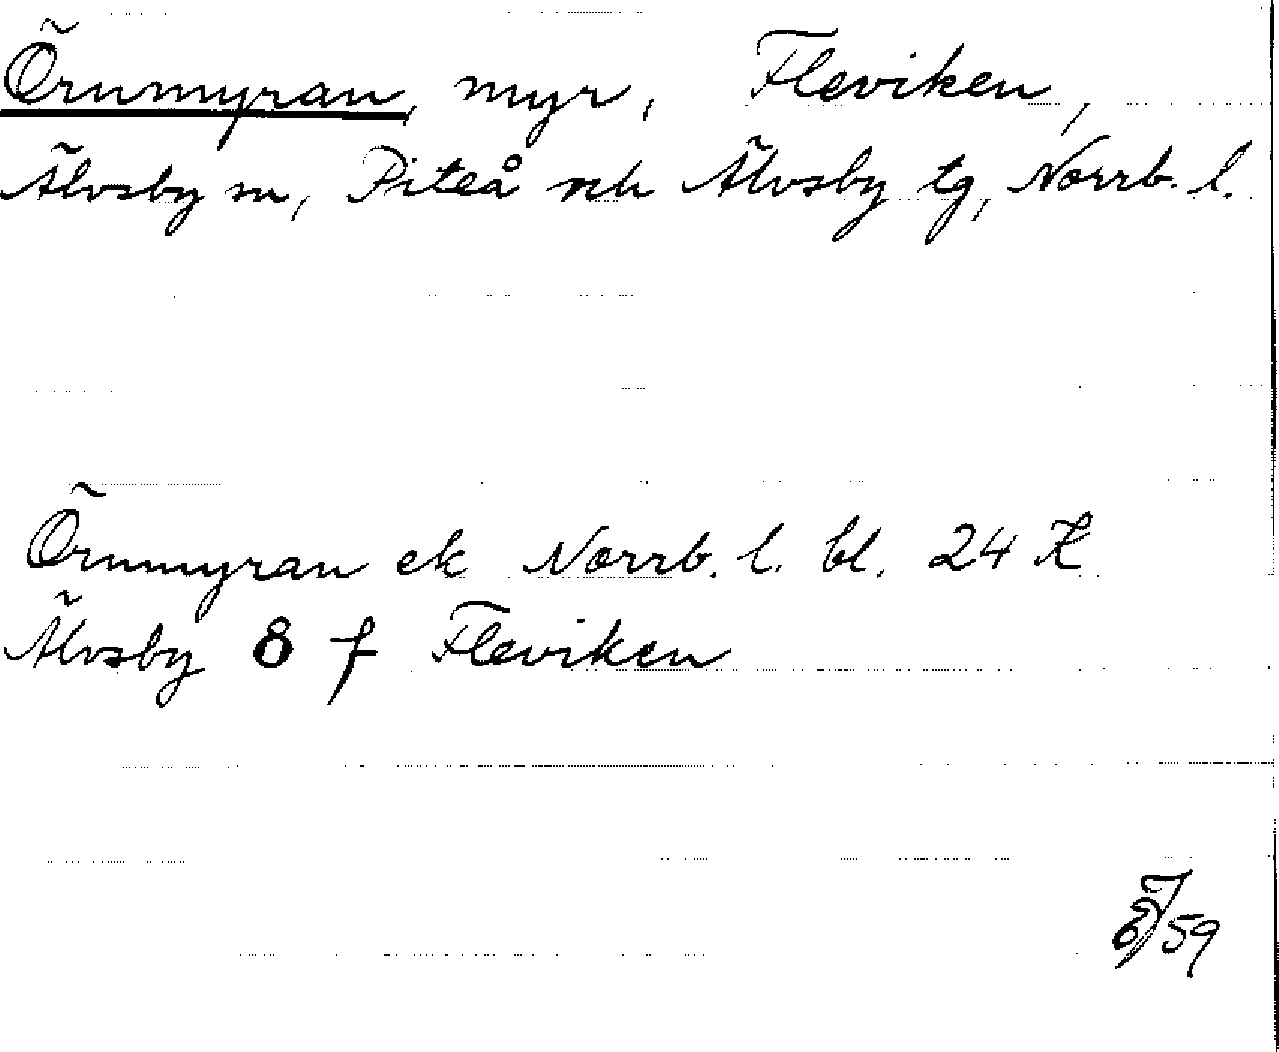 Örnmyran, myr, Fleviken,
Älvsby sn, Piteå och Älvsby tg, Norrb. l.
Örnmyran ek Norrb. l. bl. 24 K
Älvsby 8 f Fleviken
59